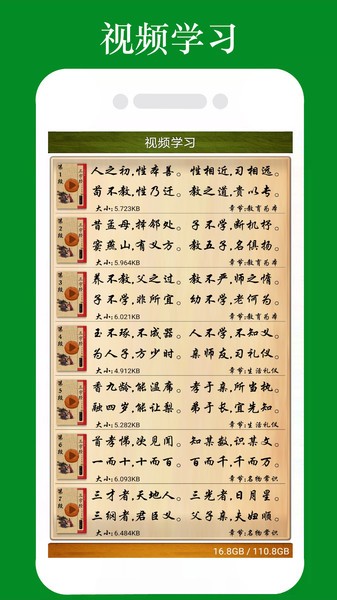 视频学习
视频学习
第1级
人之初,性本善。 性相近,习相远。
苟不教,性乃迁。 教之道,贵以专。
大小:5.723KB 章节:教育为本
第2级
昔孟母,择邻处。 子不学,断机杼。
窦燕山,有义方。 教五子,名俱扬。
大小:5.964KB 章节:教育为本
第3级
养不教,父之过。 教不严,师之惰。
子不学,非所宜。 幼不学,老何为。
大小:6.021KB 章节:教育为本
第4级
玉不琢,不成器。 人不学,不知义。
为人子,方少时。 亲师友,习礼仪。
大小:4.912KB 章节:生活礼仪
第5级
香九龄,能温席。 孝于亲,所当执。
融四岁,能让梨。 弟于长,宜先知。
大小:5.282KB 章节:生活礼仪
第6级
首孝悌,次见闻。 知某数,识某文。
一而十,十而百。 百而千,千而万。
大小:6.093KB 章节:名物常识
第7级
三才者,天地人。 三光者,日月星。
三纲者,君臣义。 父子亲,夫妇顺。
大小:6.484KB 章节:名物常识
16.8GB / 110.8GB